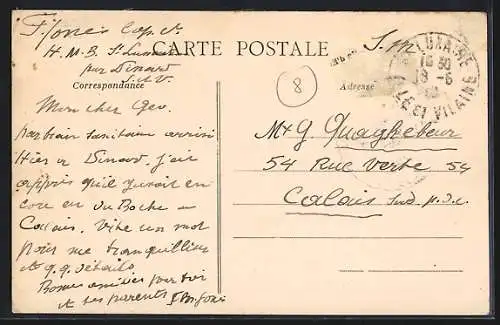 H.M.B. St Lunaire
par Dinard
I.&V.
CARTE POSTALE
S.M.
Correspondance
Adresse
8
LUNAIRE
16 30
18-6
ILLE ET VILAINE
Mon cher Geo.
par train sanitaire arrivé
Hier à Dinard. J'ai
appris qu'il y avait en
core eu du Boche
Calais. Vite un mot
pour me tranquilliser
et q.q. détails
Bonnes amitiés pour toi
et tes parents
Mr G. Quaghebeur
54 Rue Verte 54
Calais Sud P.d.C.